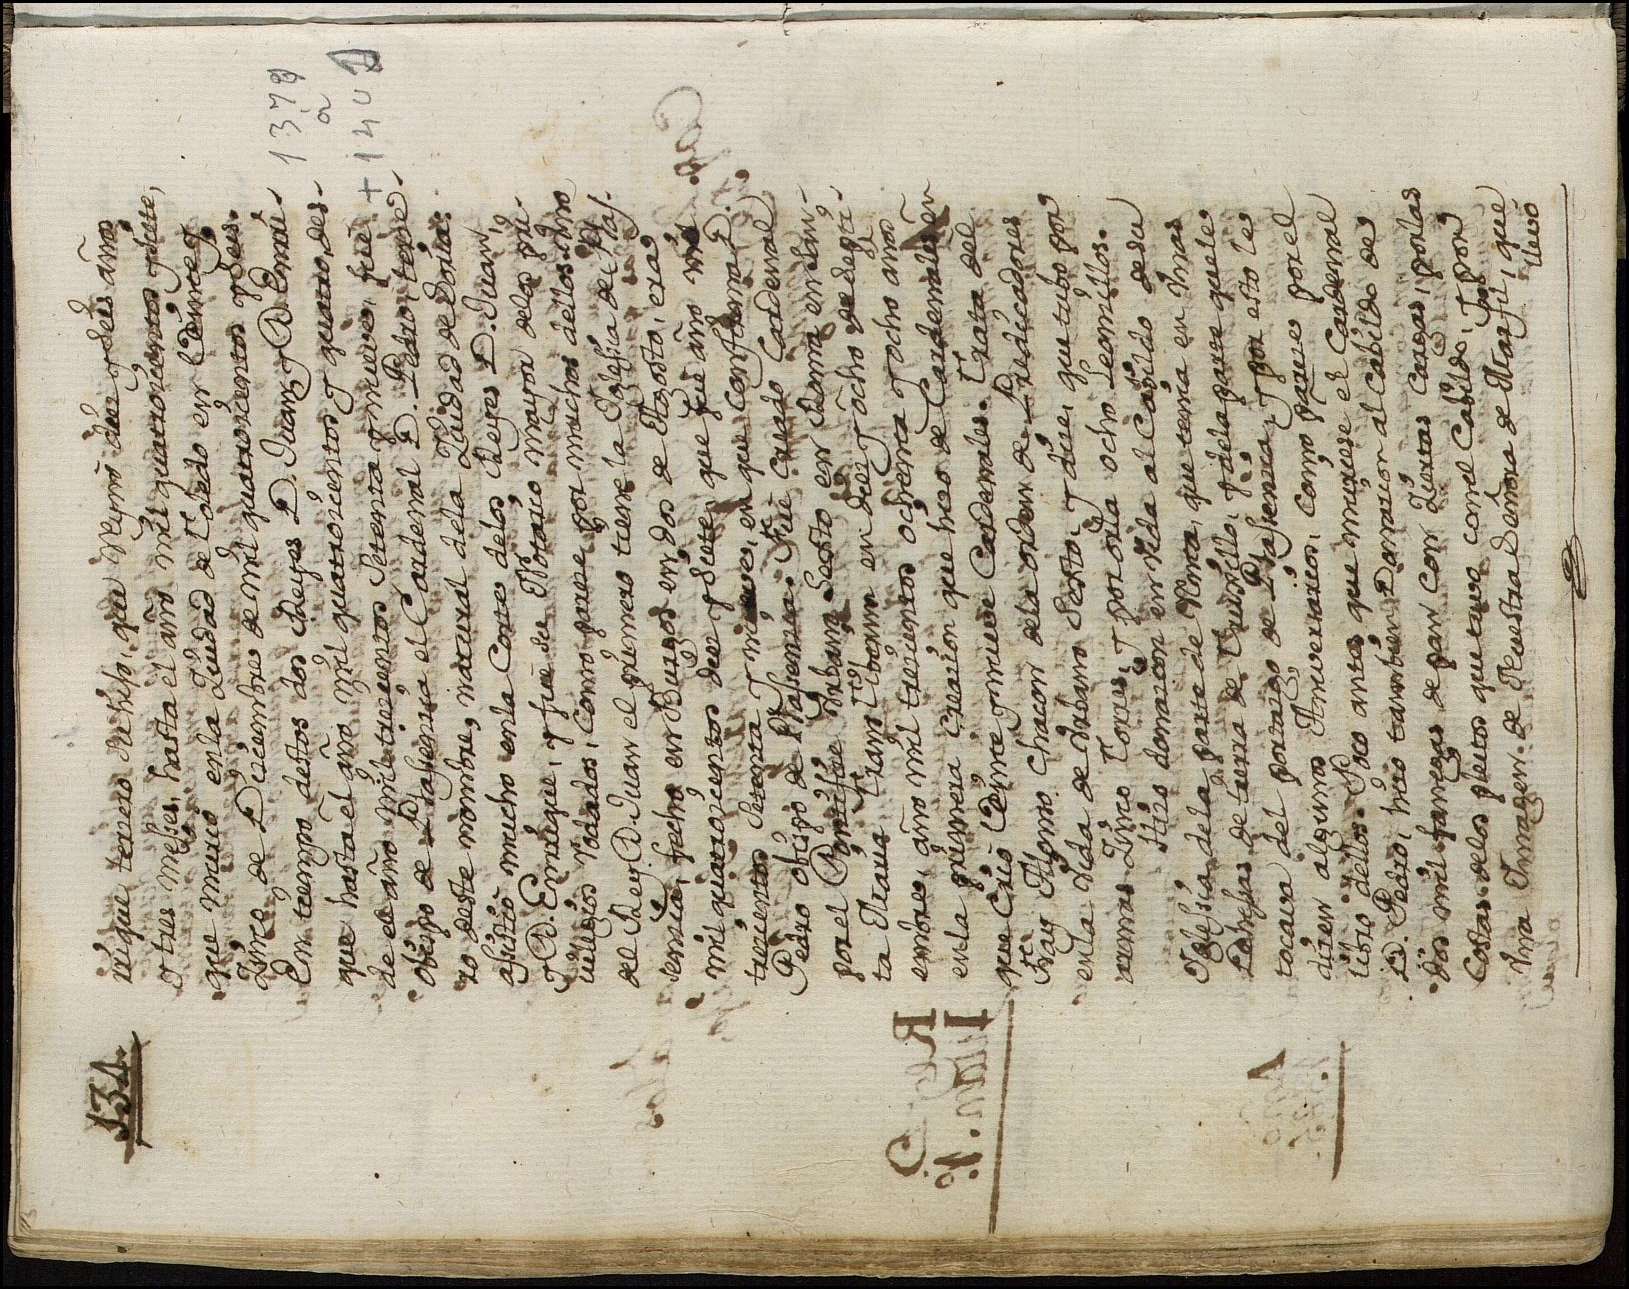 134.
rique tercero su hijo, que Reyno diez y seis años
y tres meses, hasta el año mil quatrocientos y siete,
que murio en la Ziudad de Toledo en Veinte y
Zinco de Diciembre de mil quatrocientos y seis.
En tiempo destos dos Reyes D. Juan, y D. Enri-
que hasta el año mil quatrocientos y quatro, des-
de el año mil trecientos Setenta y nueve, fue
Obispo de Plasencia el Cardenal D. Pedro, terce-
ro deste nombre, natural dela Ziudad de Soria.
asistió mucho en la Corte delos Reyes D. Juan,
y D. Enrique, y fue su Notario mayor delos pri-
uilegios rodados, como parece por muchos dellos. Uno
del Rey D. Juan el primero tiene la Iglesia de Pla-
sencia, fecho en Burgos en dos de Agosto, era
mil quatrocientos diez y siete, que fue año mil
trecientos Setenta y nueve, en que confirma D.
Pedro obispo de Plasencia. Fue criado Cardenal
por el Pontifice Urbano Sexto en Roma en San-
ta Maria Trans Tiberim en diez y ocho de Septi-
embre, año mil trecientos ochenta y ocho años
en la primera creacion que hizo de Cardenales en
que Crió Veinte y nueve Cardenales. Trata del
Fray Alonso Chacon dela orden de Predicadores
en la Vida de Urbano Sexto, y dice, que tubo por
armas Zinco Torres, y por orla ocho Leoncillos.
Hizo donacion en vida al Cabildo de su
Iglesia dela parte de Renta, que tenia en Unas
Dehesas de tierra de Truxillo, y dela parte que le
tocava del portazgo de Plasencia, y por esto le
dicen algunos Aniversarios, como parece por el
libro dellos. Poco antes que muriese el Cardenal
D. Pedro, hizo tambien Donacion al Cabildo de
dos mil fanegas de pan con Ziertas Cargas, por las
Costas delos pleitos que tuvo con el Cabildo, y por
Una Imagen de Nuestra Señora de Marfil, que
llevó
1379
a
+ 140